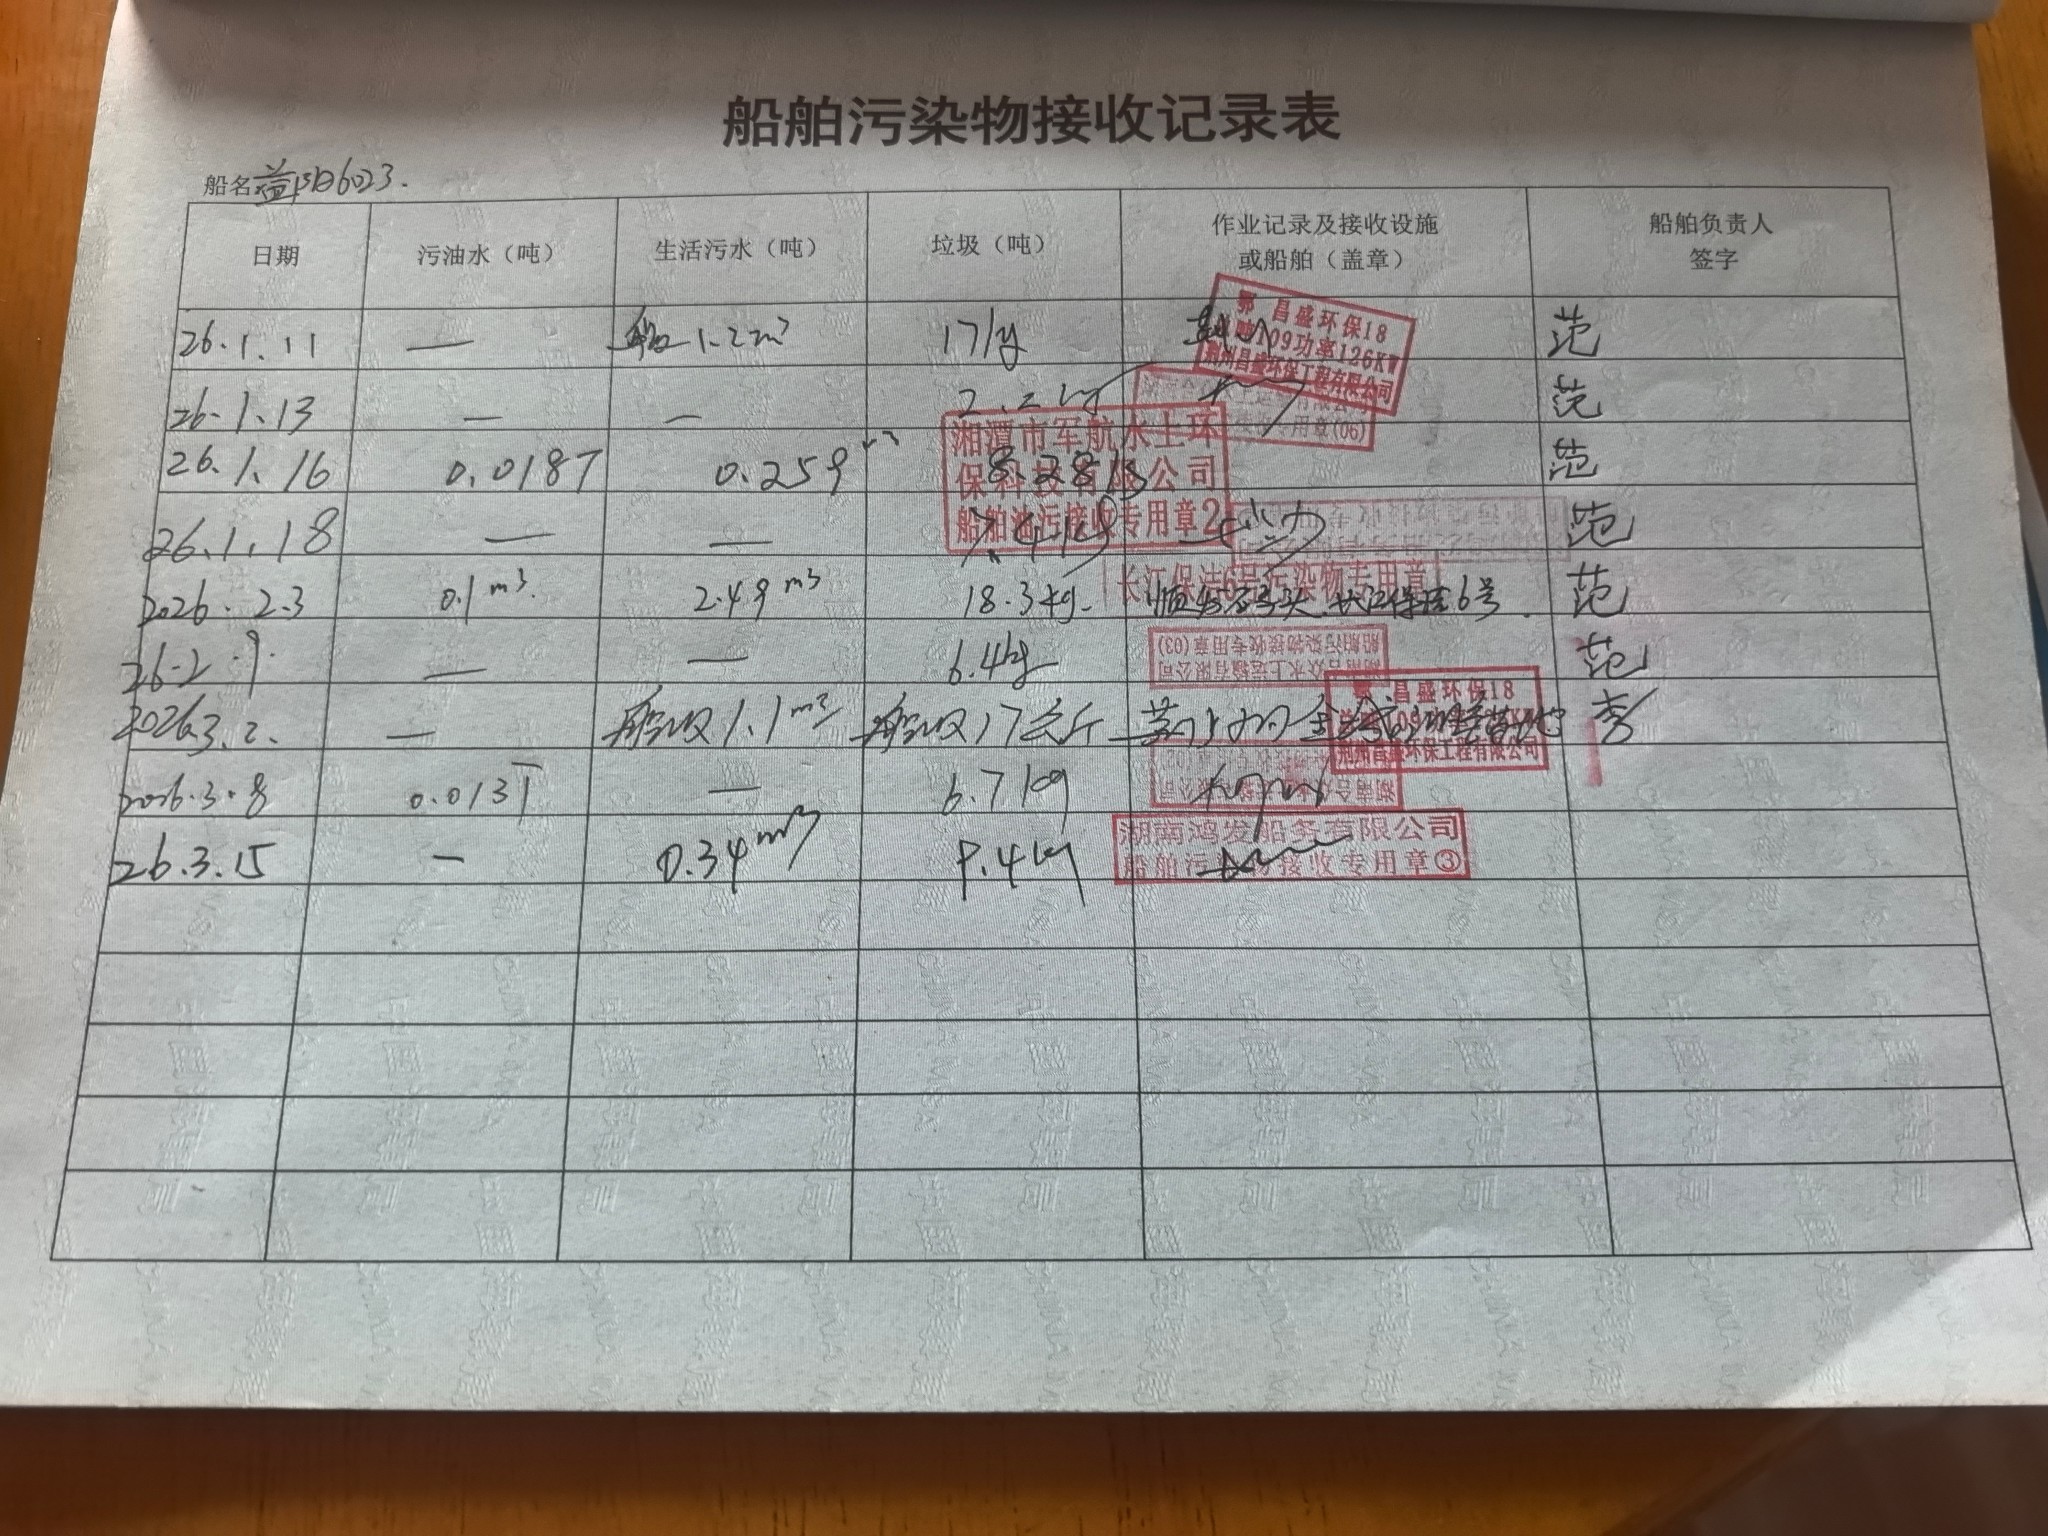 船舶污染物接收记录表
船名 益阳6023.
日期 污油水（吨） 生活污水（吨） 垃圾（吨） 作业记录及接收设施或船舶（盖章） 船舶负责人签字
26.1.11 — 1.2m³ 17kg 范
鄂 昌盛环保18
总吨109功率126KW
荆州昌盛环保工程有限公司
26.1.13 — — 2.2kg 范
专用章(06)
26.1.16 0.018T 0.259 范
湘潭市军航水上环
保科技有限公司
船舶油污接收专用章2
26.1.18 — — 7.4kg 范
2026.2.3 0.1m³ 2.49m³ 18.3kg 长江保洁6号 范
长江保洁6号污染物专用章
26.2.9. — — 6.4kg 范
船舶污染物接收专用章(03)
水上运输有限公司
2026.3.2. — 船收1.1m³ 船收17公斤 李
鄂 昌盛环保18
荆州昌盛环保工程有限公司
2026.3.8 0.013T — 6.7kg
26.3.15 — 0.34m³ 9.4kg
湖南鸿发船务有限公司
船舶污染物接收专用章③